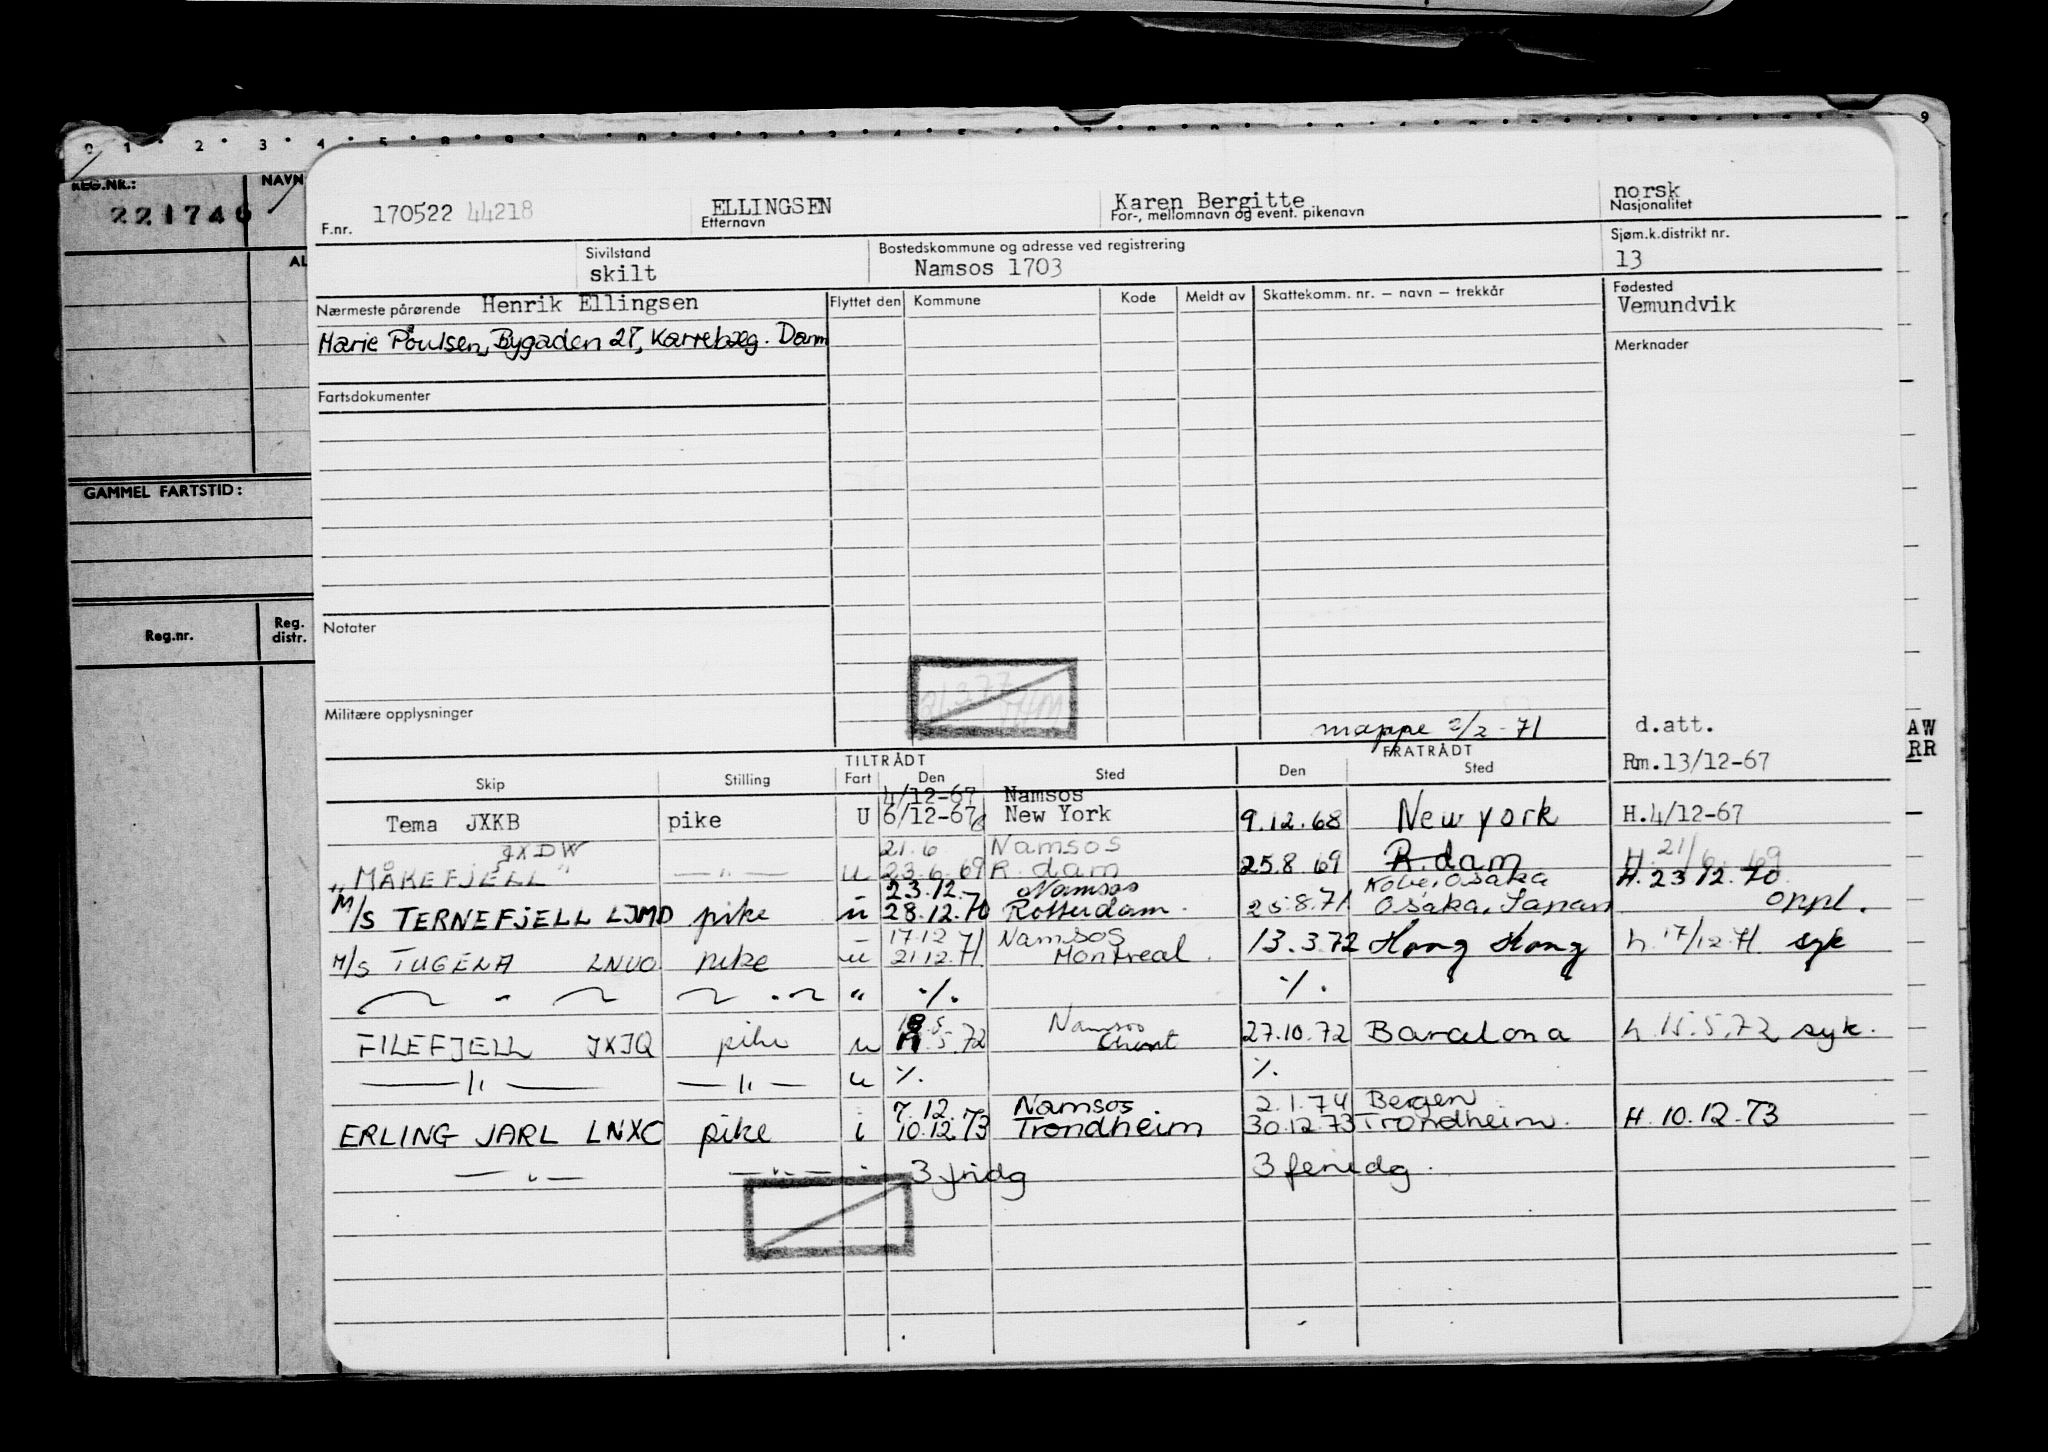 0 1 2 3 4 5 8 9
9
REG.NR.: NAVN
22174
AL
GAMMEL FARTSTID:
Reg.nr. Reg. distr.
AW
RR
F.nr. 170522 44218 ELLINGSEN Karen Bergitte norsk
Etternavn For-, mellomnavn og event. pikenavn Nasjonalitet
Sivilstand Bostedskommune og adresse ved registrering Sjøm.k.distrikt nr.
skilt Namsos 1703 13
Nærmeste pårørende Henrik Ellingsen Flyttet den Kommune Kode Meldt av Skattekomm. nr. – navn – trekkår Fødested
Vemundvik
Marie Poulsen, Bygaden 27, Karrebæg. Danm
Merknader
Fartsdokumenter
Notater
Militære opplysninger
mappe 2/2-71 d.att.
TILTRÅDT FRATRÅDT Rm.13/12-67
Skip Stilling Fart Den Sted Den Sted
4/12-67 Namsos
Tema JXKB pike U 6/12-67 New York 9.12.68 New York H.4/12-67
JXDW 21.6 Namsos
"MÅKEFJELL" —"— u 23.6.69 R.dam 25.8.69 R.dam H.21/6.69
23.12. Namsos Kobe, Osaka H.23.12.70
M/S TERNEFJELL LJMD pike u 28.12.70 Rotterdam. 25.8.71 Osaka, Japan oppl.
17.12.71 Namsos
M/S TUGELA LNUO pike u 21.12.71 Montreal. 13.3.72 Hong Hong h.17/12.71 syk
— " — — " — " ./. ./.
18.5. Namsos
FILEFJELL JXJQ pike u 5.72 Ghent 27.10.72 Barcelona h.15.5.72 syk.
—"— —"— u ./. ./.
7.12. Namsos 2.1.74 Bergen
ERLING JARL LNXC pike i 10.12.73 Trondheim 30.12.73 Trondheim. H.10.12.73
—"— —"— 3 fridg 3 feriedg.